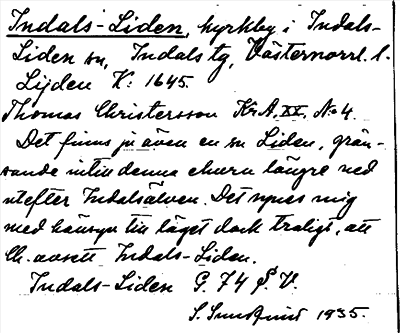 Indals-Liden, kyrkby i Indals-
Liden sn, Indals tg, Västernorrl. l.
Lijden K: 1645.
Thomas Christersson Kr.A. XX. No 4.
Det finns ju även en sn Liden, grän-
sande intill denna ehuru längre ned
utefter Indalsälven. Det synes mig
med hänsyn till läget dock troligt, att
Ch. avsett Indals-Liden.
Indals-Liden G. 74 § V.
S. Sundquist 1935.